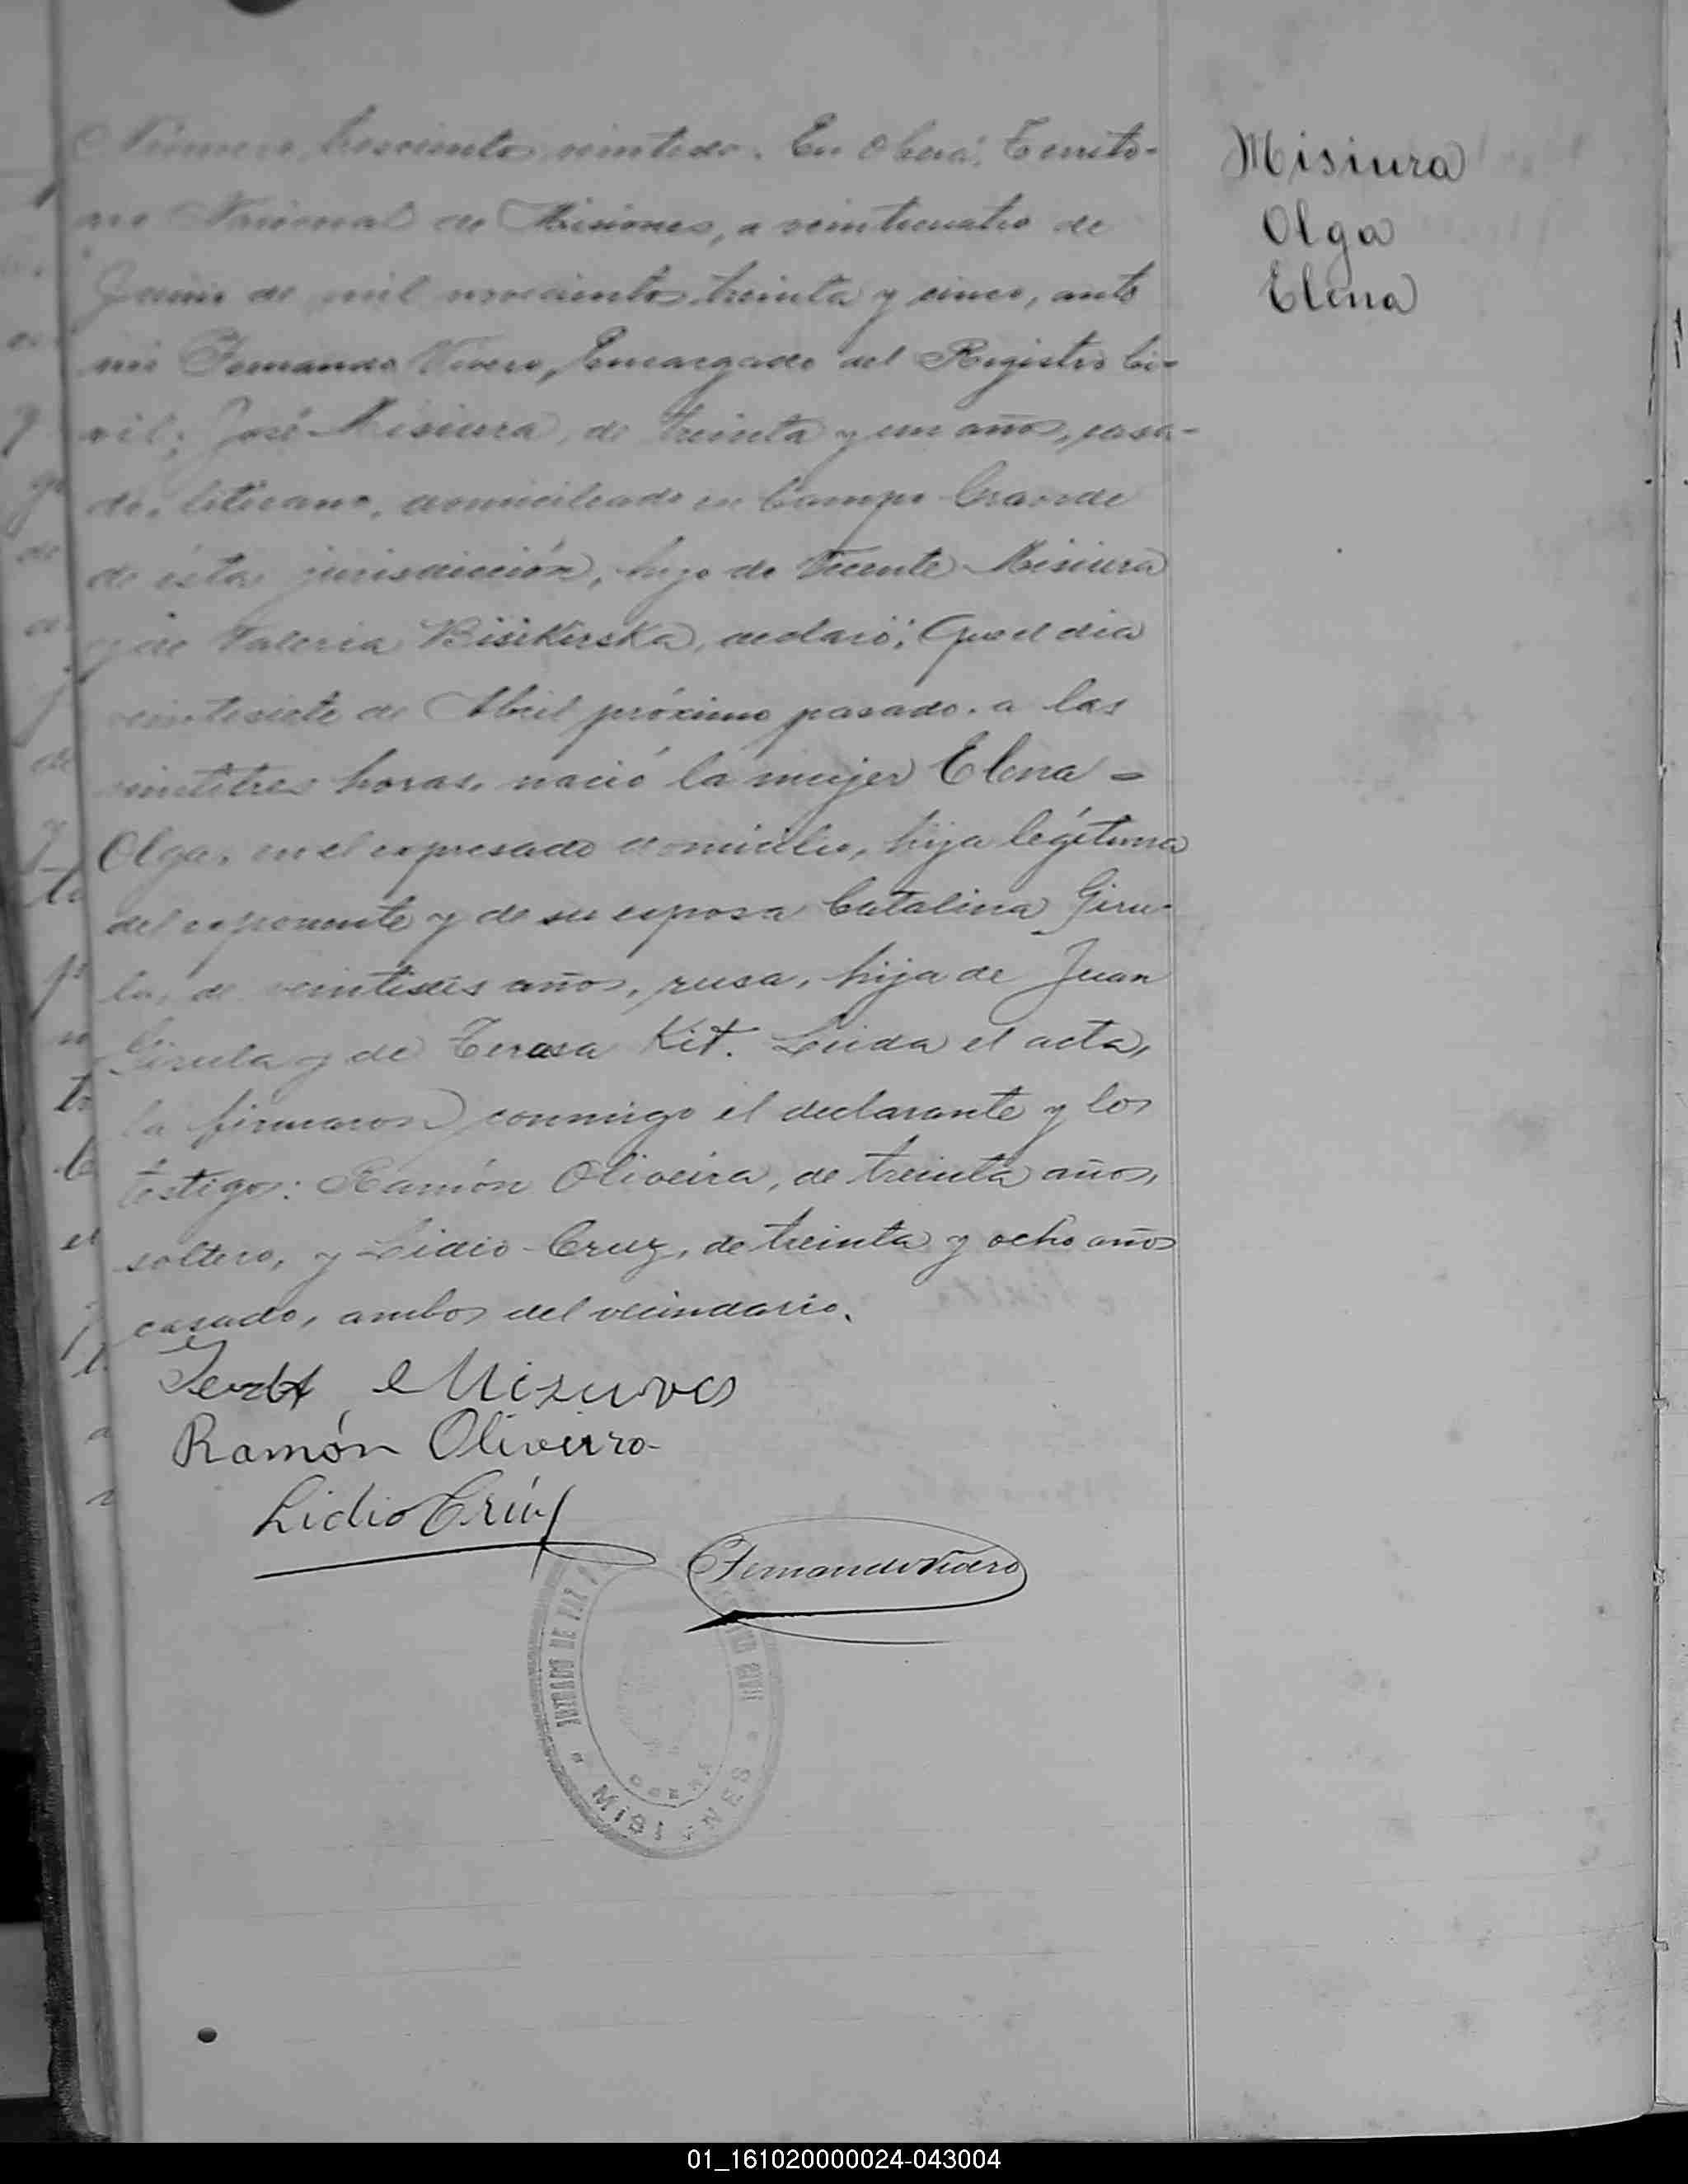 Número trescientos veintidos. En Oberá, Territo-
rio Nacional de Misiones, a veinticuatro de
Junio de mil novecientos treinta y cinco, ante
mi Fernando Vivero, Encargado del Registro Ci-
vil; José Misiura, de treinta y un años, casa-
do, lituano, domiciliado en Campo Grande
de ésta jurisdicción, hijo de Vicente Misiura
y de Valeria Bisikirska, declaró: Que el dia
veintisiete de Abril próximo pasado, a las
veintitres horas, nació la mujer Elena =
Olga, en el expresado domicilio, hija legítima
del exponente y de su esposa Catalina Giru-
la, de años, rusa, hija de Juan
Girula y de Teresa Kit. Leida el acta,
la firmaron conmigo el declarante y los
testigos: Ramón Oliveira, de treinta años,
soltero, y Lidio Cruz, de treinta y ocho años
casado, ambos del vecindario.
Ramón Oliveira
Lidio Crúz
Fernando Vivero
JUZGADO DE PAZ
CIVIL
OBERA
MISIONES
Misiura
Olga
Elena
01_161020000024-043004